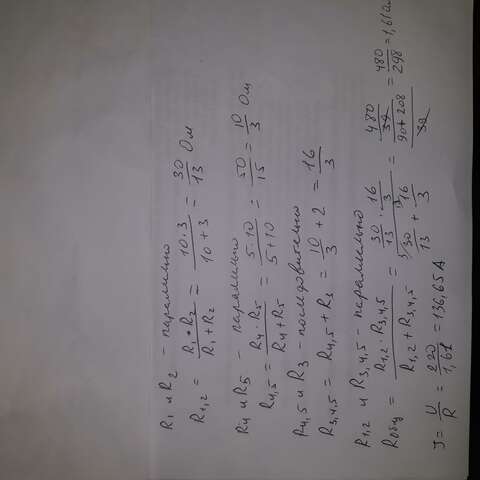 R₁ и R₂ - параллельно
R₁,₂ = R₁ * R₂ / R₁ + R₂ = 10·3 / 10+3 = 30/13 Ом
R₄ и R₅ - параллельно
R₄,₅ = R₄·R₅ / R₄+R₅ = 5·10 / 5+10 = 50/15 = 10/3 Ом
R₄,₅ и R₃ - последовительно
R₃,₄,₅ = R₄,₅ + R₃ = 10/3 + 2 = 16/3
R₁,₂ и R₃,₄,₅ - параллельно
Rобщ = R₁,₂ · R₃,₄,₅ / R₁,₂ + R₃,₄,₅ = 30/13 · 16/3 / 30/13 + 16/3 = 480/39 / 90+208/39 = 480/298 = 1,61 Ом
J = U/R = 220/1,61 = 136,65 А